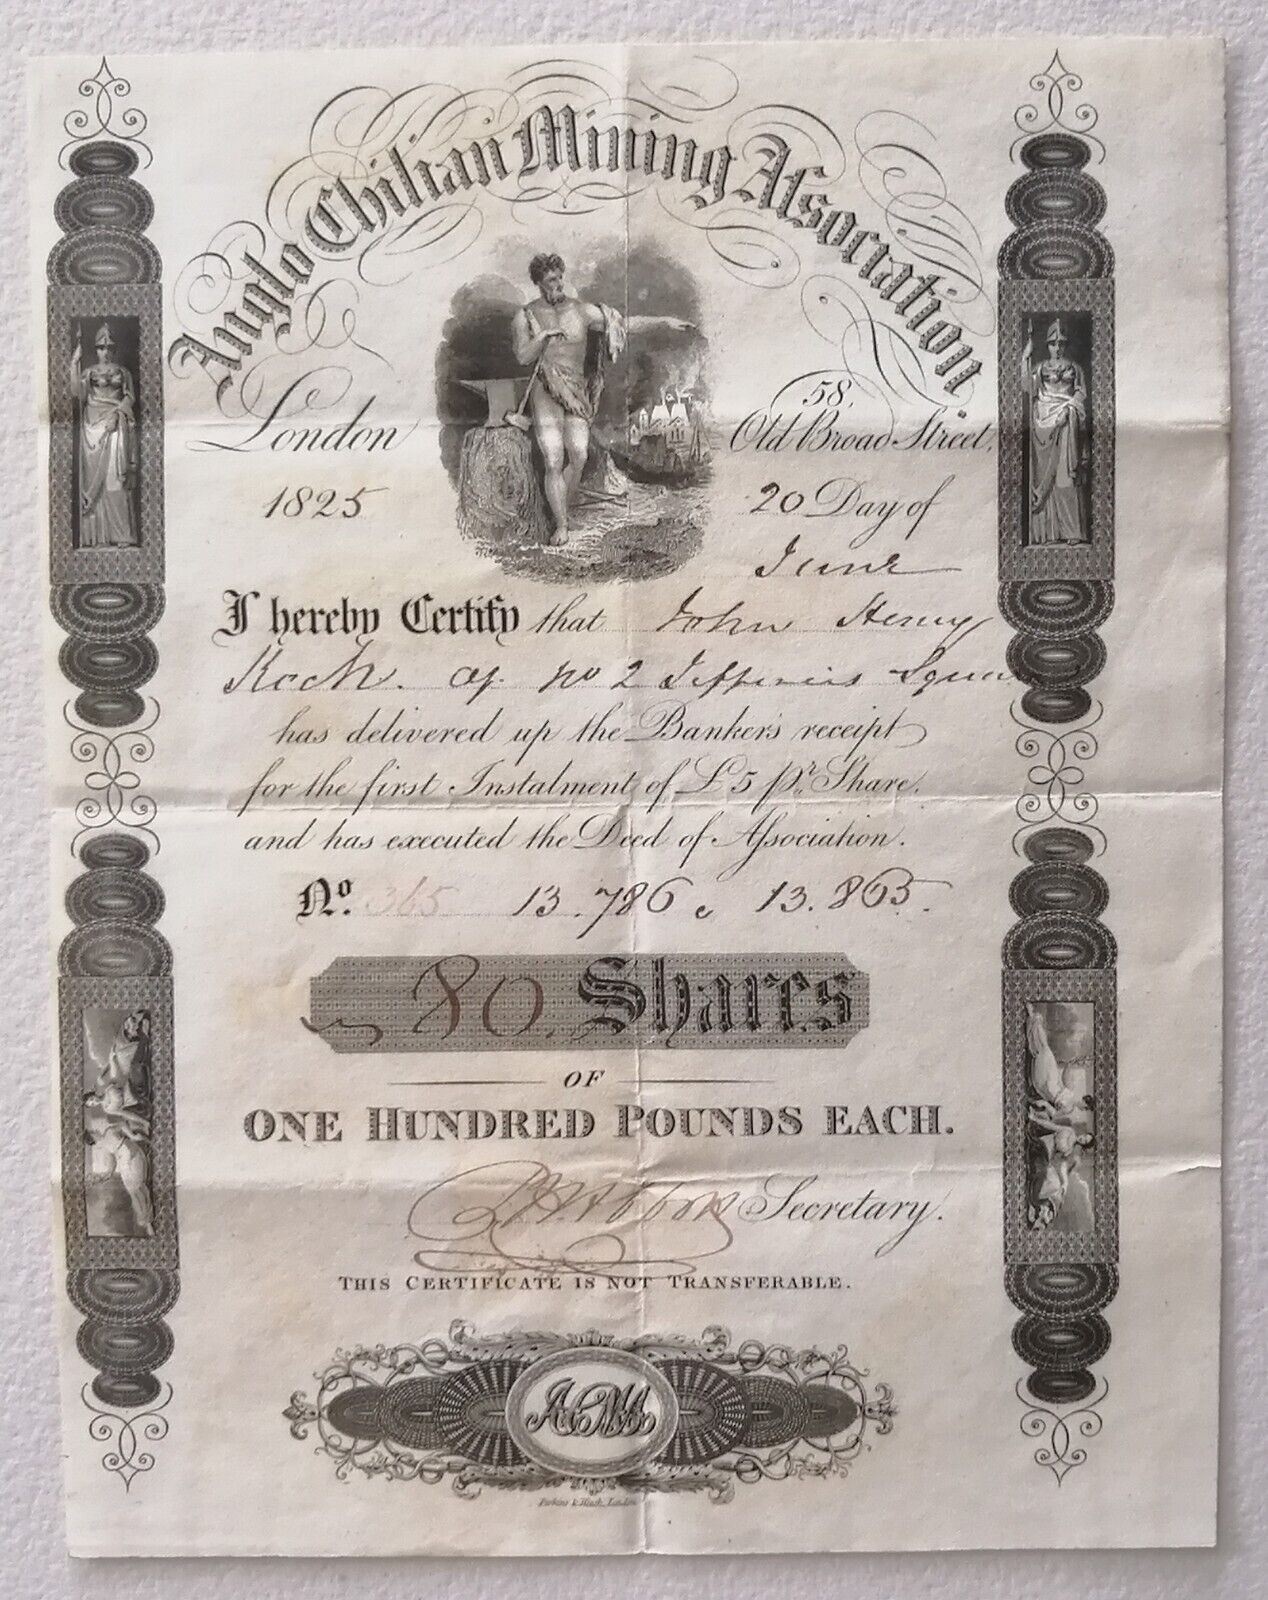 Anglo Chilian Mining Aſsociation
London 58, Old Broad Street,
1825 20 Day of
June
I hereby Certify that John Henry
Koch. of No 2 Jefferies Square
has delivered up the Banker's receipt
for the first Instalment of £5 pr. Share.
and has executed the Deed of Aſsociation.
No. 365 13.786 @ 13.865.
80 Shares
OF
ONE HUNDRED POUNDS EACH.
Secretary.
THIS CERTIFICATE IS NOT TRANSFERABLE.
Perkins & Heath, London